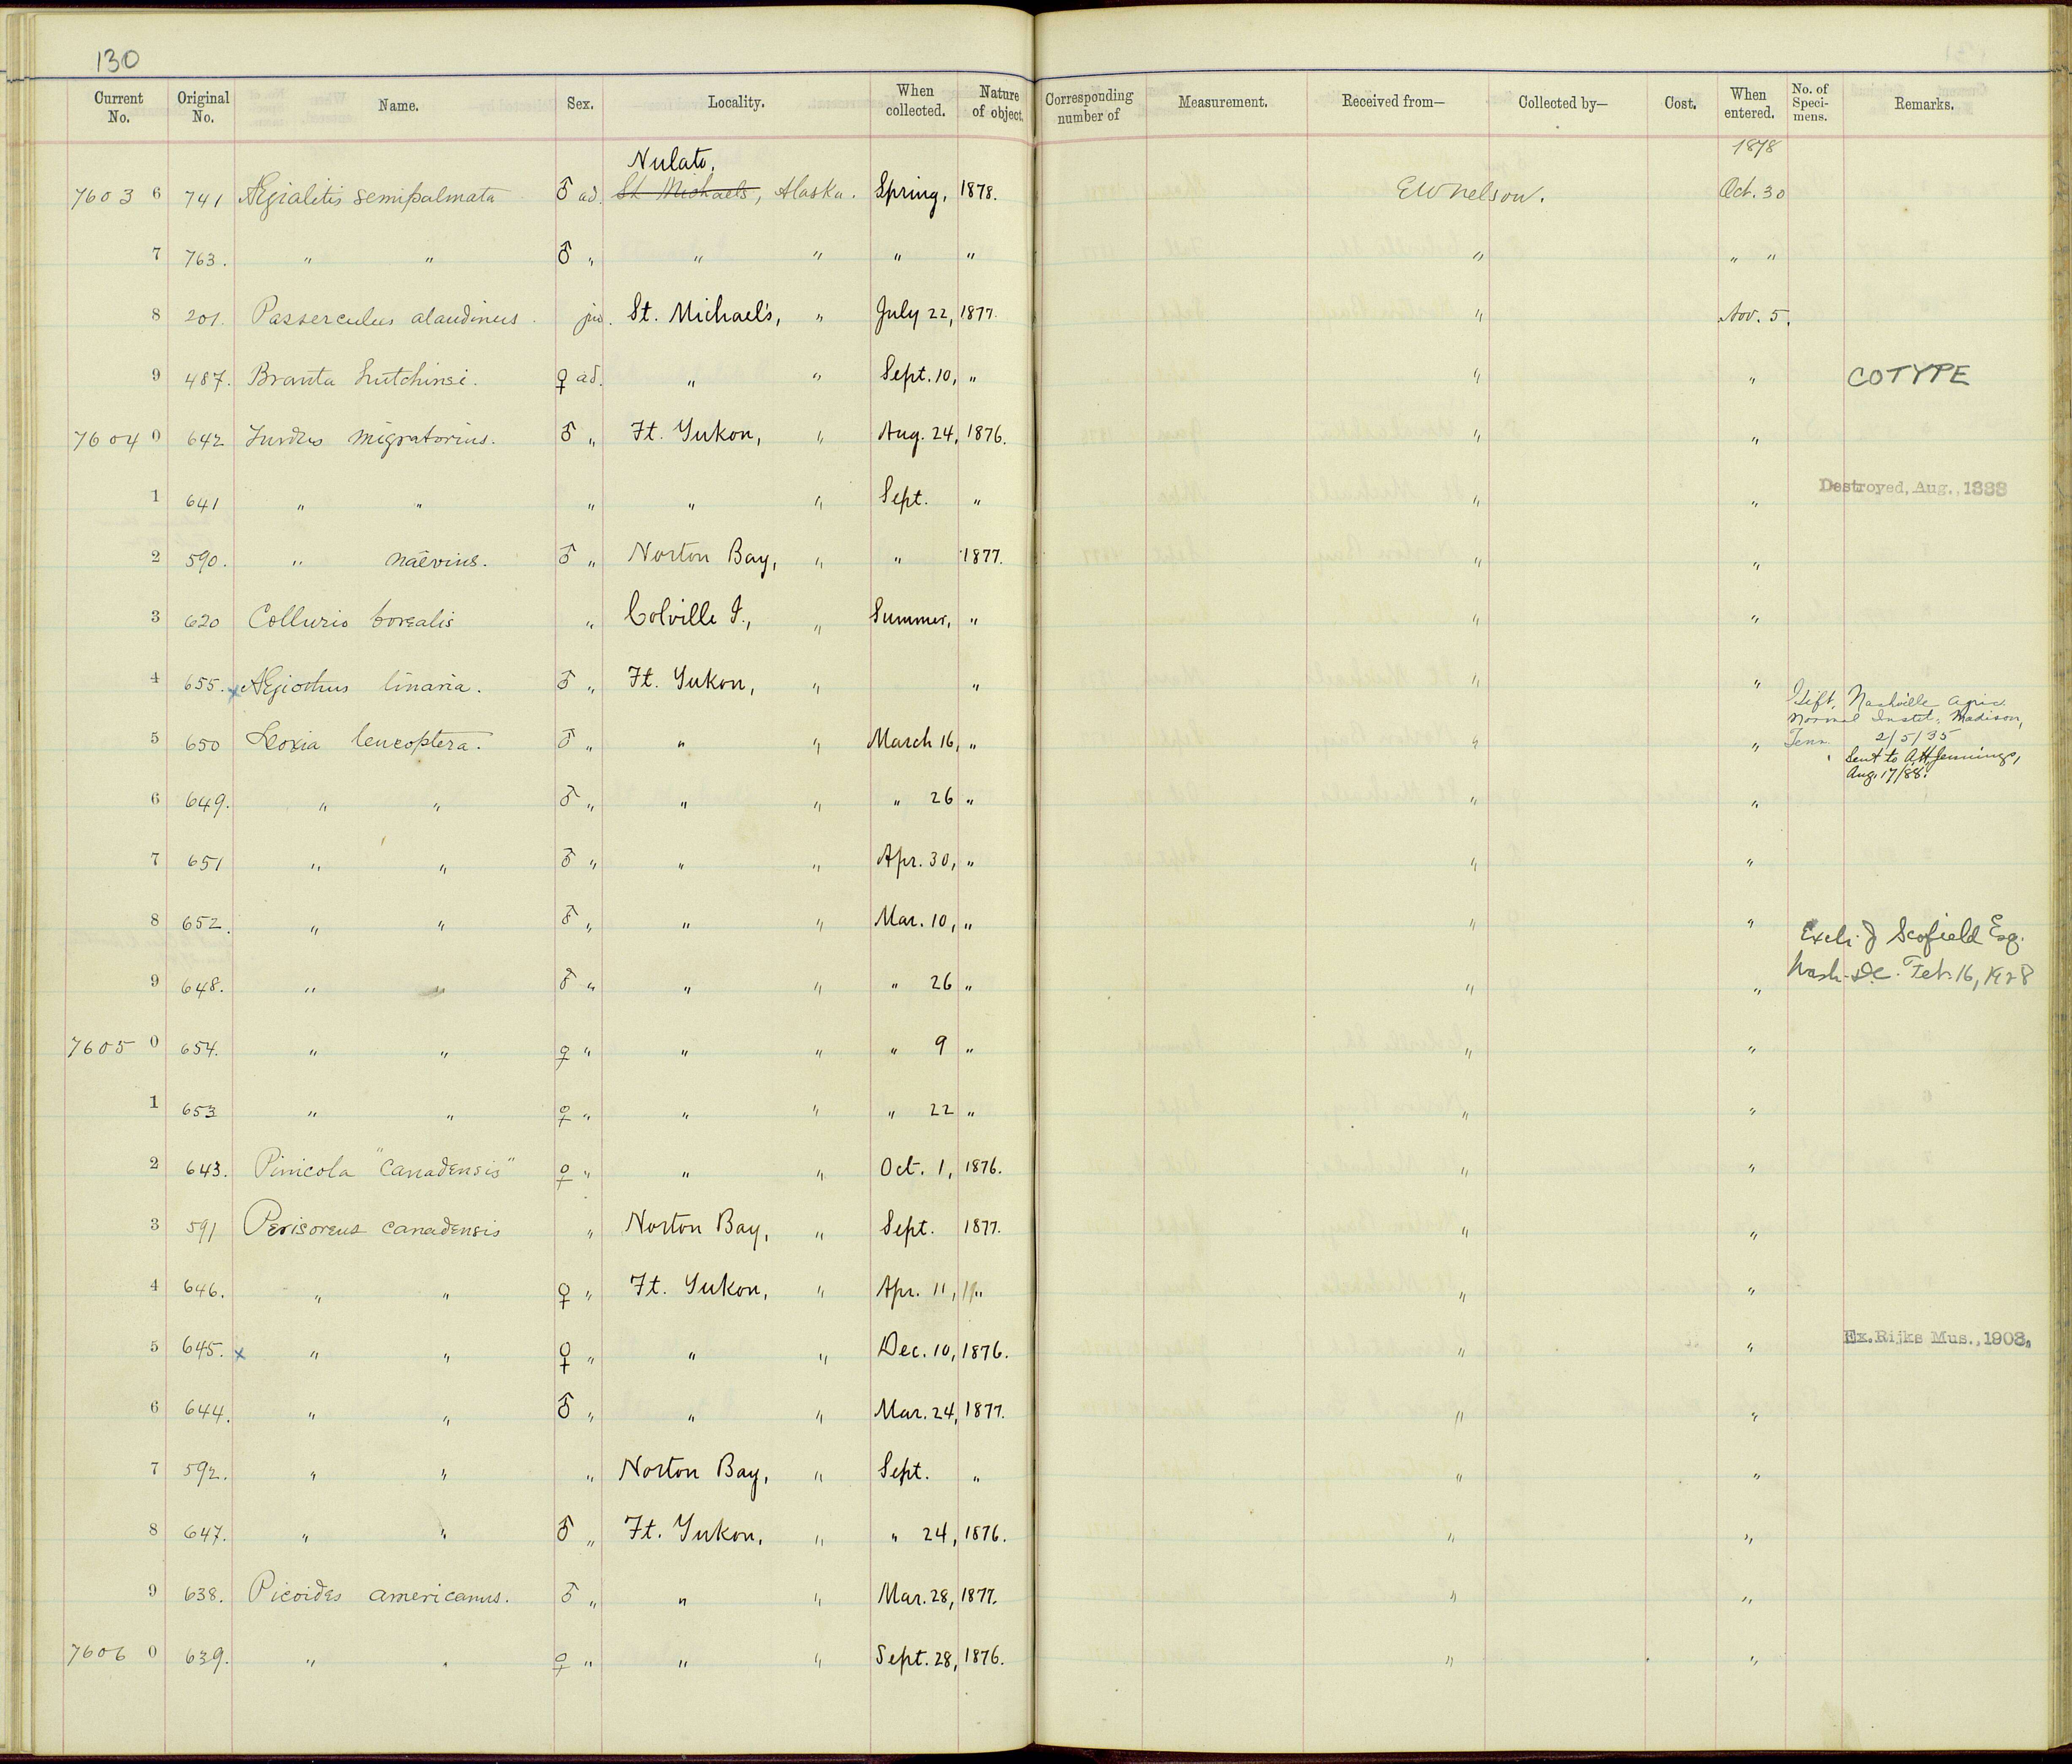 130
Current No. Original No. Name. Sex. Locality. When collected. Nature of object. Corresponding number of Measurement. Received from— Collected by— Cost. When entered. No. of Speci-mens. Remarks.
Nulato, 1878
7603 6 741 Ægialitis semipalmata ♂ ad. St Michaels, Alaska. Spring, 1878. EWNelson. Oct. 30
7 763. " " ♂ " " " " " " " "
8 201. Passerculus alaudinus. juv. St. Michael's, " July 22, 1877. " Nov. 5.
9 487. Branta hutchinsi. ♀ ad. " " Sept. 10, " " " COTYPE
7604 0 642 Turdus migratorius. ♂ " Ft. Yukon, " Aug. 24, 1876. " "
1 641 " " " " " Sept. " " " Destroyed, Aug., 1888
2 590. " naevius. ♂ " Norton Bay, " " 1877. " "
3 620 Collurio borealis " Colville I., " Summer, " " "
4 655. x Ægiothus linaria. ♂ " Ft. Yukon, " " " "
Gift, Nashville Agric.
Normal Instit., Madison,
5 650 Loxia leucoptera. ♂ " " " March 16, " " " Tenn. 2/5/35
Sent to A H Jennings,
Aug. 17/88.
6 649. " " ♂ " " " " 26 " " "
7 651 " " ♂ " " " Apr. 30, " " "
8 652. " " ♂ " " " Mar. 10, " " "
Exch. J Scofield Esq.
Wash. D.C. Feb. 16, 1928
9 648. " " ♂ " " " " 26 " " "
7605 0 654. " " ♀ " " " " 9 " " "
1 653 " " ♀ " " " " 22 " " "
2 643. Pinicola "Canadensis" ♀ " " " Oct. 1, 1876. " "
3 591 Perisoreus canadensis " Norton Bay, " Sept. 1877. " "
4 646. " " ♀ " Ft. Yukon, " Apr. 11, " " "
5 645. x " " ♀ " " " Dec. 10, 1876. " " Ex. Rijks Mus., 1903.
6 644. " " ♂ " " " Mar. 24, 1877. " "
7 592. " " " Norton Bay, " Sept. " " "
8 647. " " ♂ " Ft. Yukon, " " 24, 1876. " "
9 638. Picoides americanus. ♂ " " " Mar. 28, 1877. " "
7606 0 639. " " ♀ " " " Sept. 28, 1876. " "